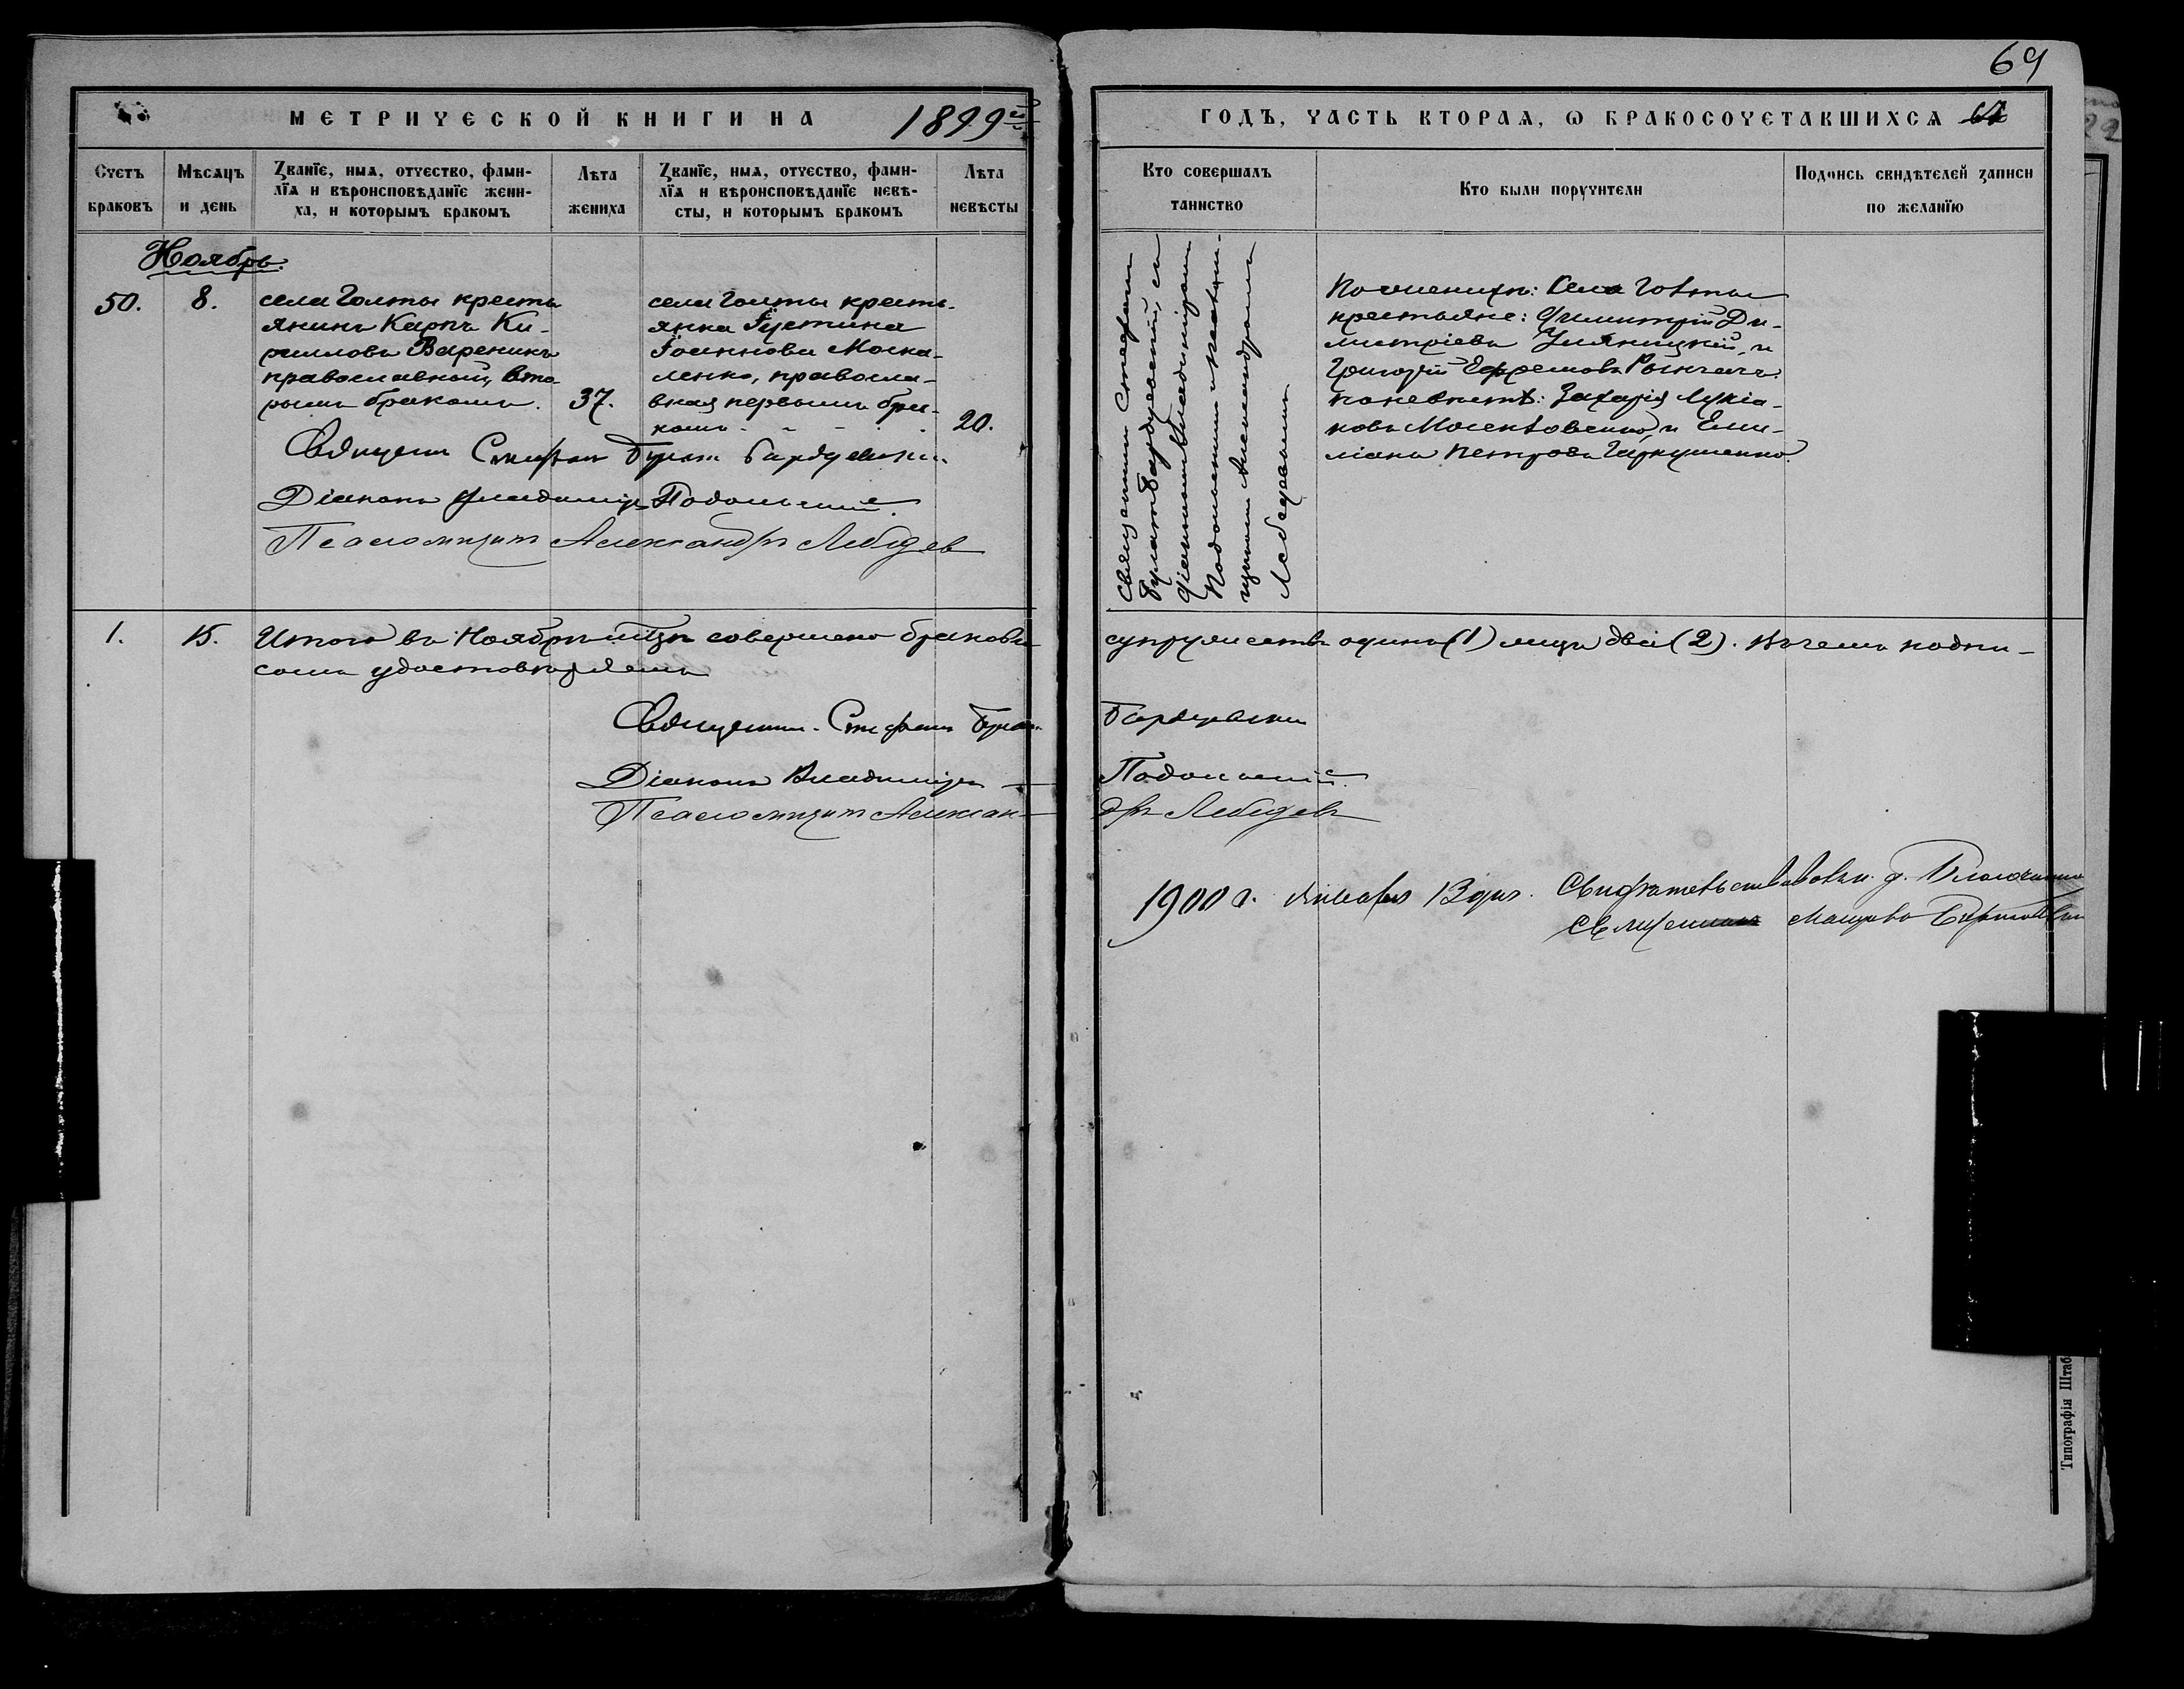 69
МЕТРИЧЕСКОЙ КНИГИ НА 1899й
ГОДЪ, ЧАСТЬ ВТОРАѦ, Ѡ БРАКОСОЧЕТАВШИХСѦ
Счетъ браковъ
Мѣсѧцъ и день
Званїе, имѧ, отчество, фами-
лїѧ и вѣроисповѣданїе жени-
ха, и которымъ бракомъ
Лѣта жениха
Званїе, имѧ, отчество, фами-
лїѧ и вѣроисповѣданїе невѣ-
сты, и которымъ бракомъ
Лѣта невѣсты
Кто совершалъ таинство
Кто были поручители
Подпись свидѣтелей записи по желанїю
Ноябрь.
50.
8.
села Голты кресть
янинъ Карпъ Ки-
рилловъ Вареникъ
православный, вто
рымъ бракомъ.
37.
села Голты кресть-
янка Іустина
Іоаннова Моска-
ленко, правосла-
вная первымъ бра-
комъ
20.
Священникъ Стефанъ
Бардуевскій, съ
діакономъ Владиміромъ
Подольскимъ и псаломщи-
комъ Александромъ
Лебедевымъ
По женихѣ: Села Голты
крестьяне: Димитрій Ди-
митріевъ и
Григорій Ефремовъ
по невѣстѣ: Захарія Лукіа-
новъ и Еми-
ліанъ Петровъ Гаркушенко.
Священникъ Стефанъ
Діаконъ Владиміръ Подольскій.
Псаломщикъ Александръ Лебедев
1.
15.
Итого въ Ноябрѣ мѣсяцѣ совершено браковъ
супружествъ одинъ (1) лицъ два (2). Въ чемъ подпи-
сомъ удостовѣряемъ
Священникъ Стефанъ
Діаконъ Владиміръ Подольскій.
Псаломщикъ Александръ Лебедевъ
1900 г. Января 13 дня. Свидѣтельствовалъ
Священникъ
Типографія Штаб